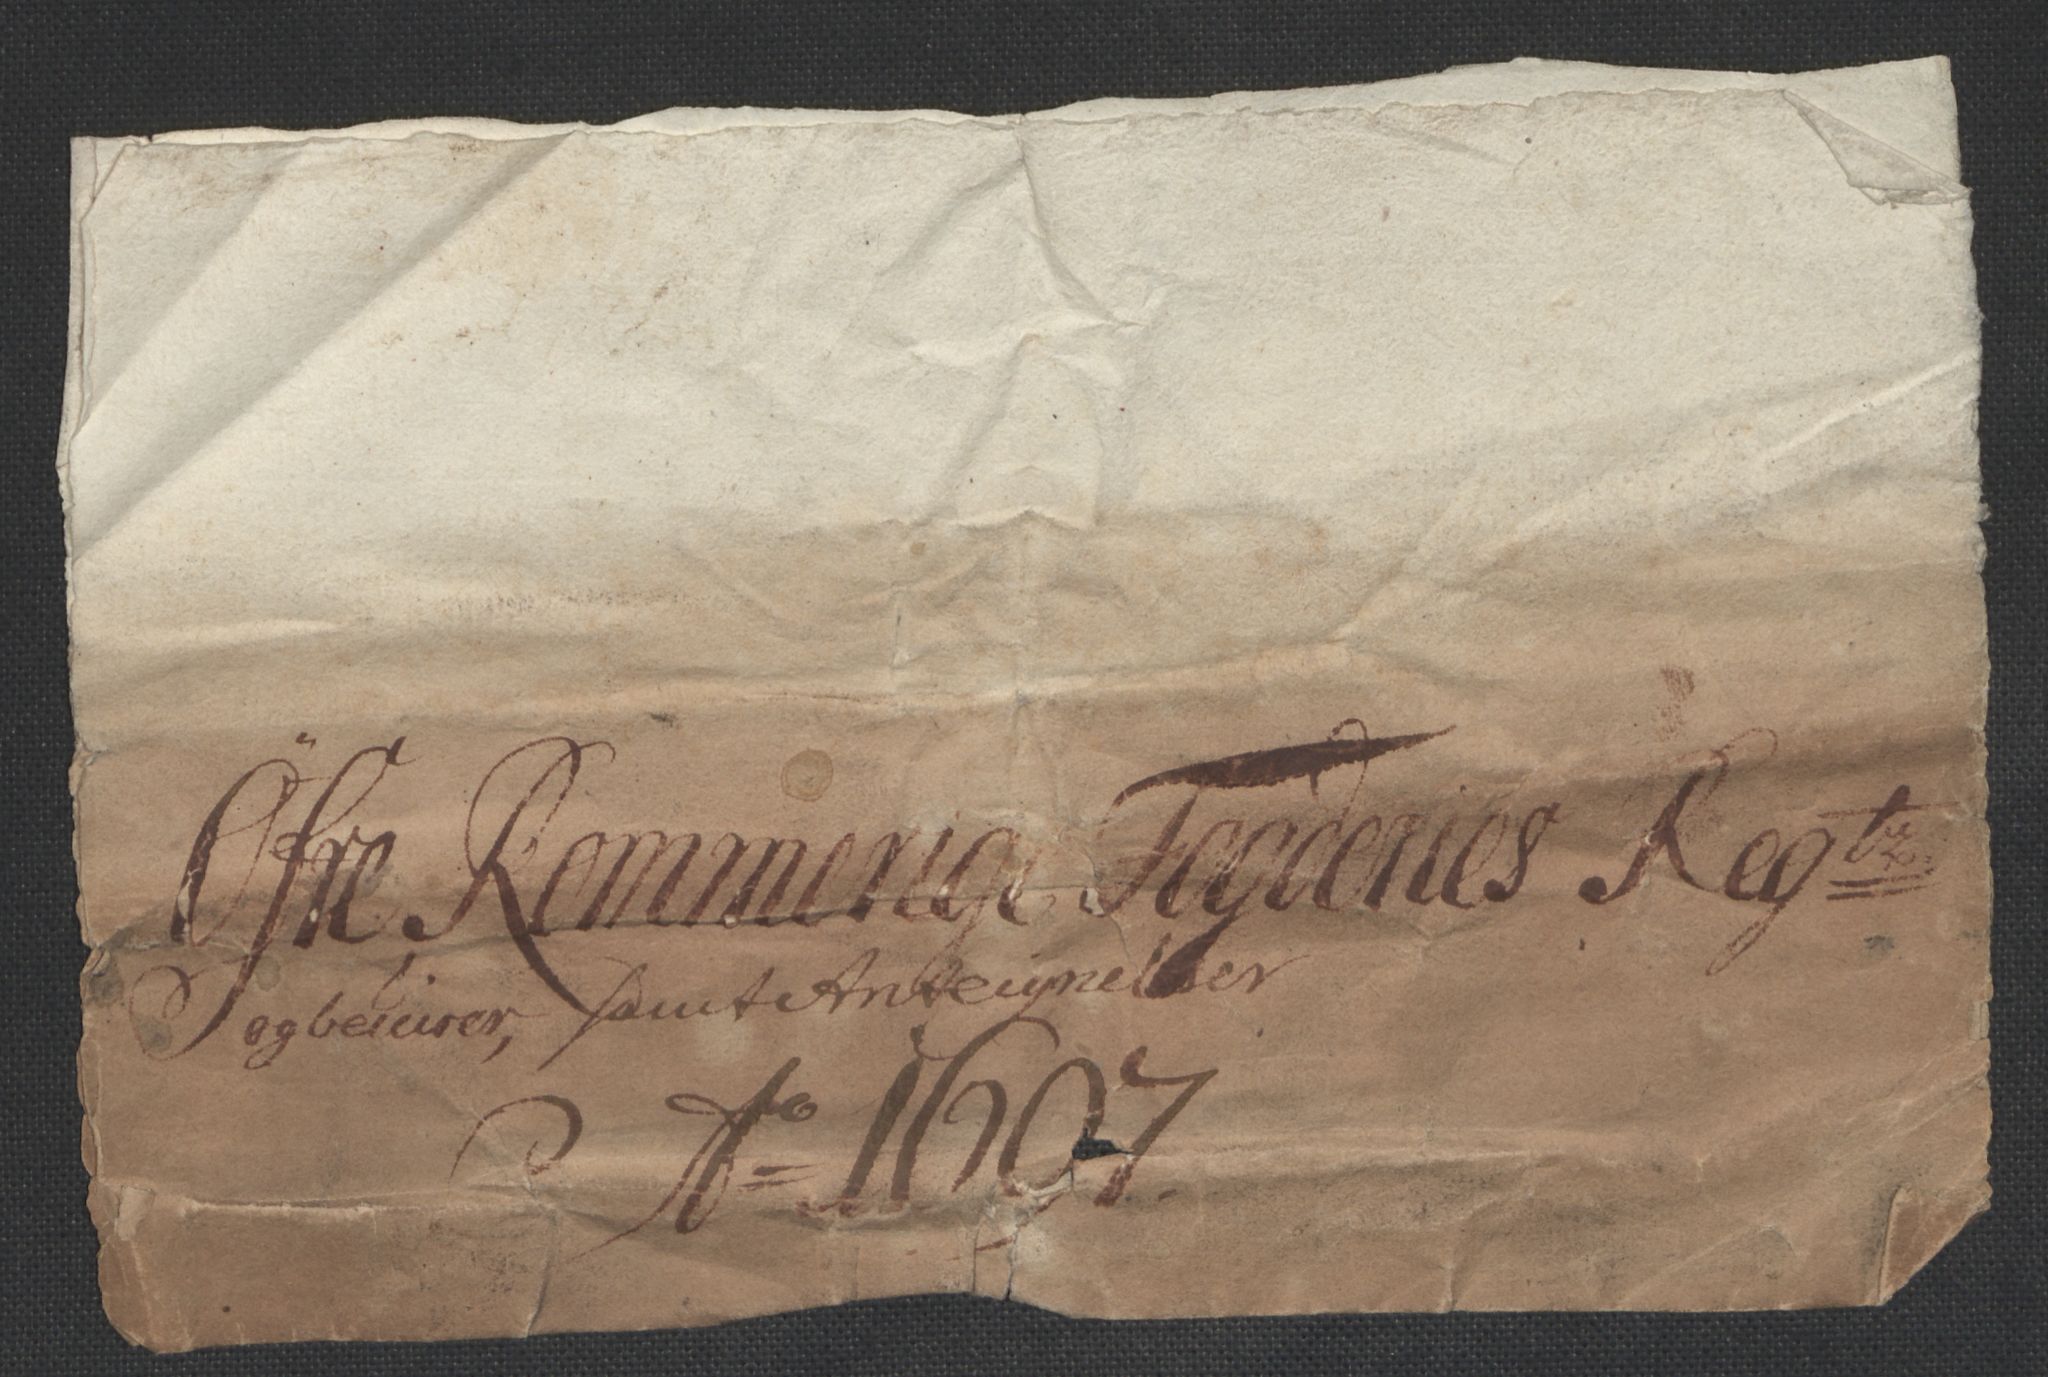 Øfre Rommerige Fogderies Regtr
og beviser, samt Anteignelser
Ao 1697.